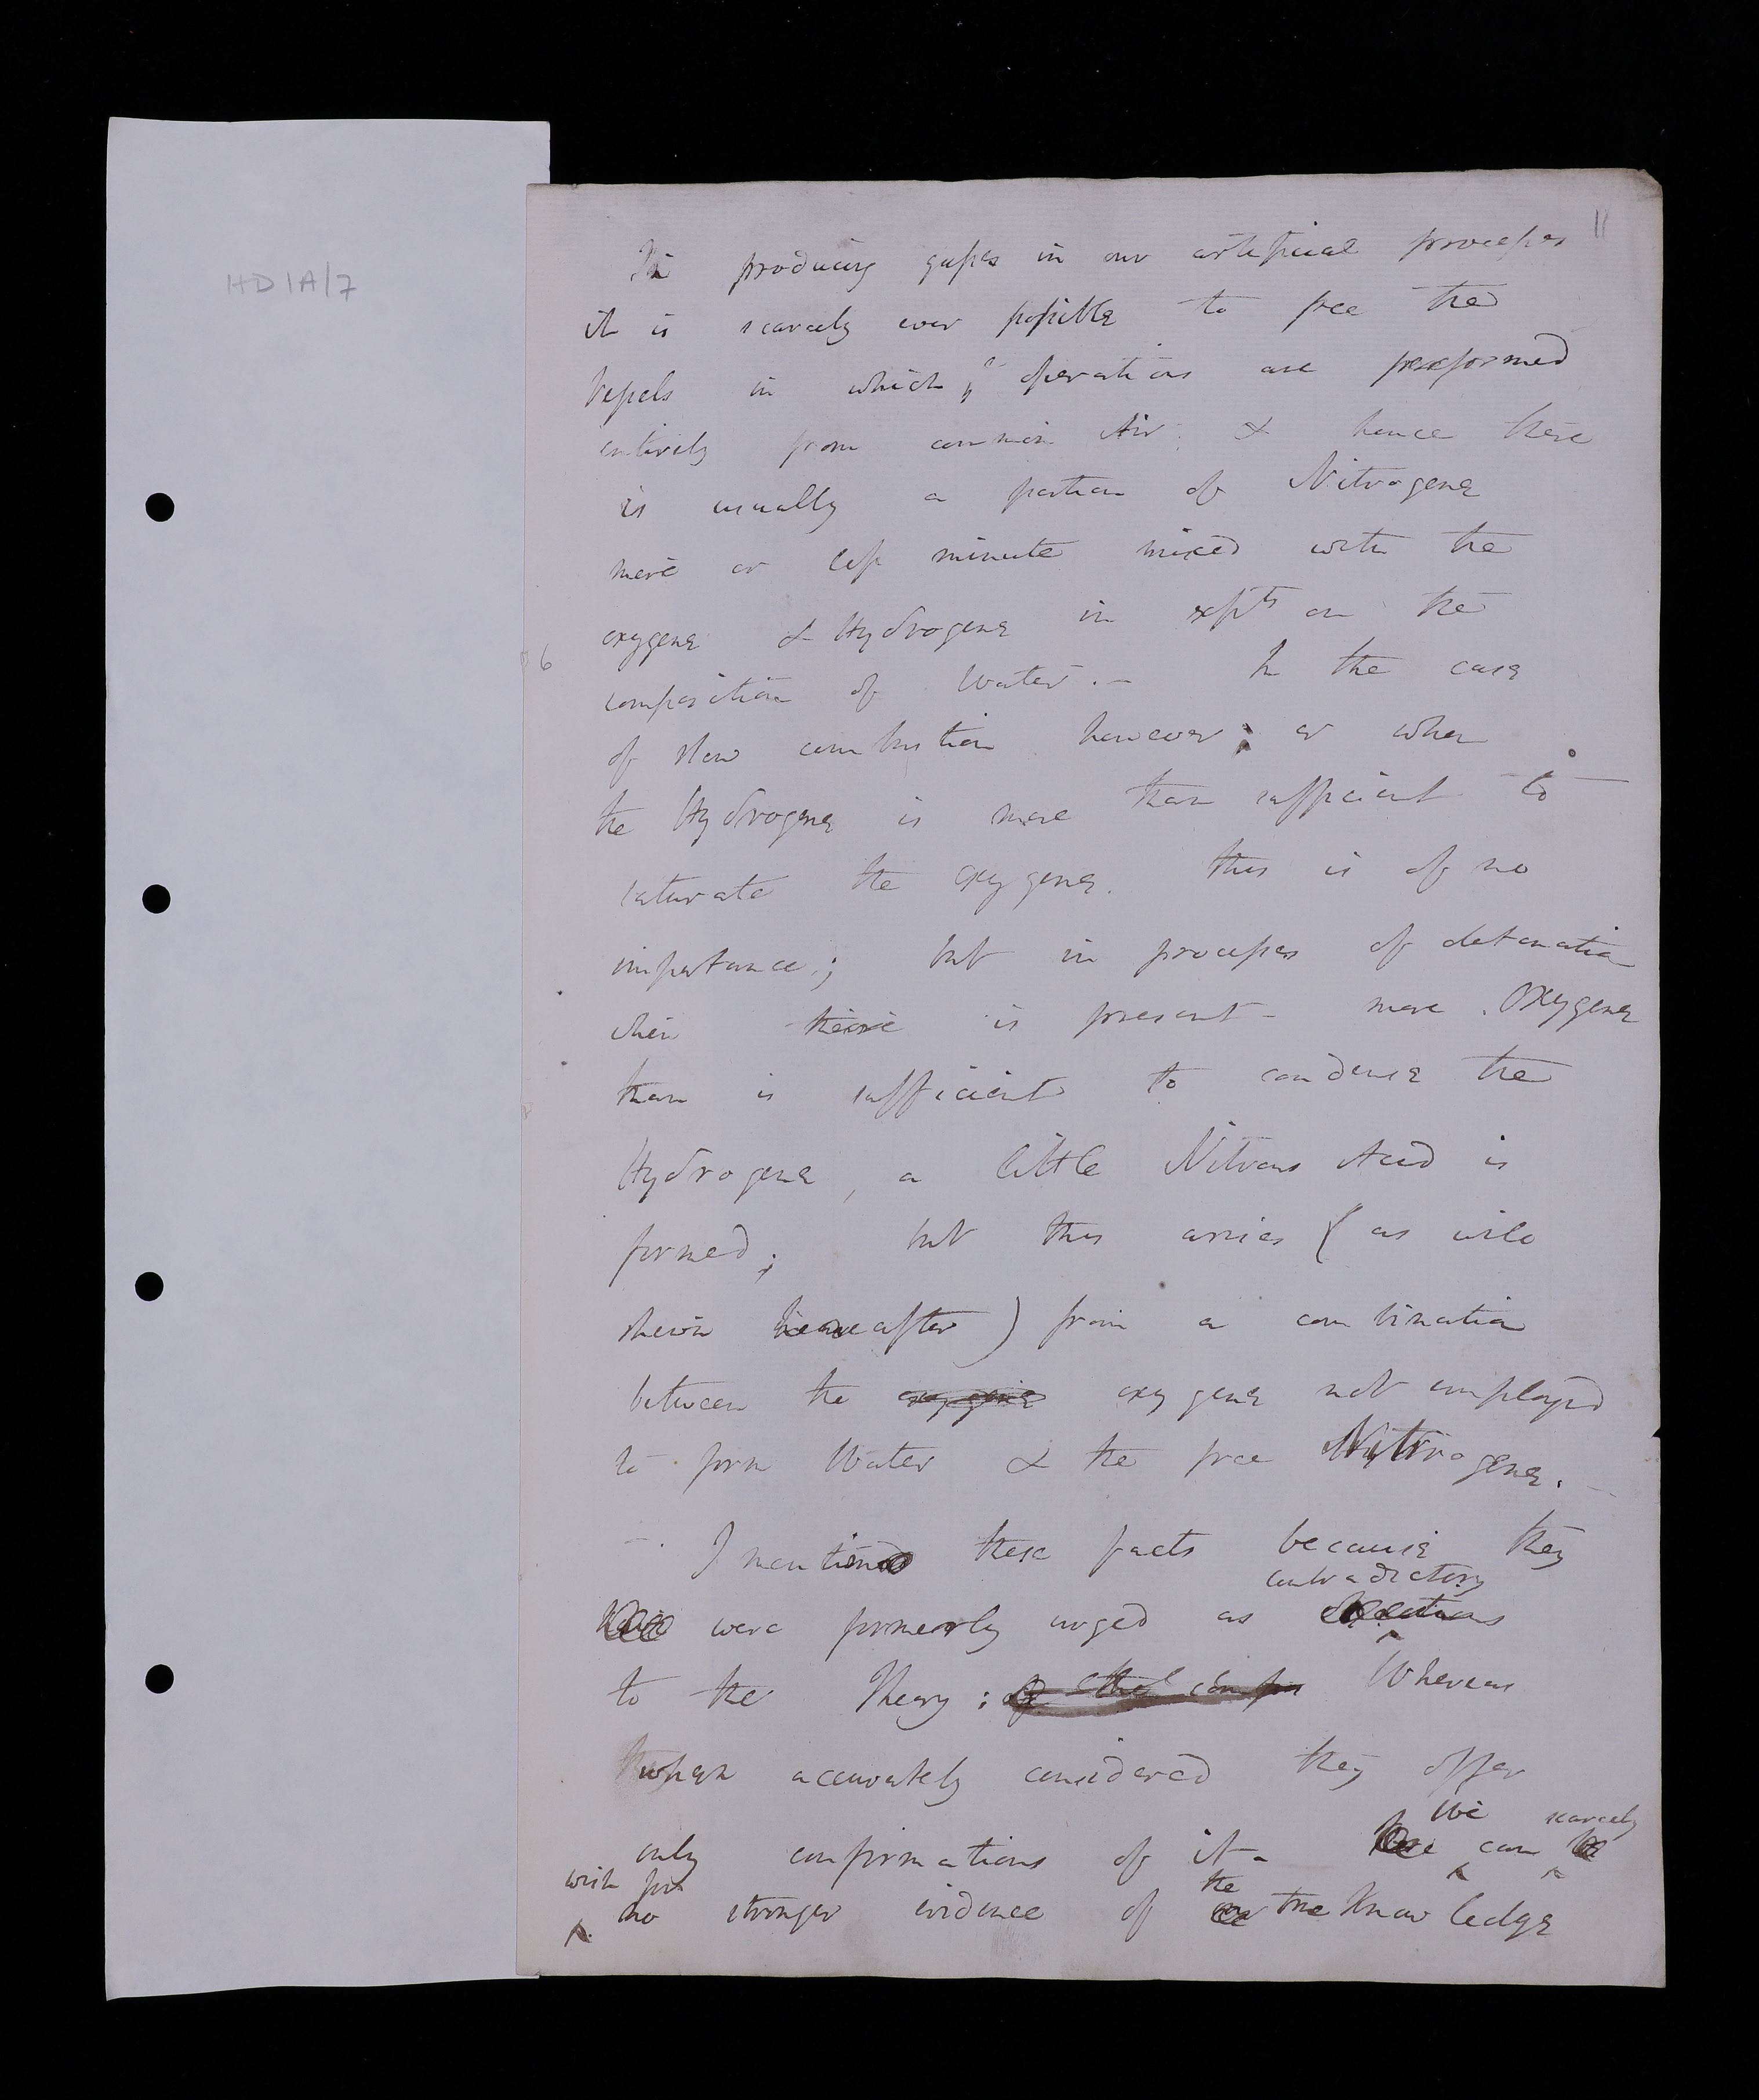 HD1A/7
11
In producing gasses in our artificial processes
it is scarcely ever possible to free the
vessels in which ye operations are performed
entirely from common Air. & hence there
is usually a portion of Nitrogene
more or less minute mixed with the
oxygene & Hydrogene in expts on the
6
composition of Water.— In the case
of slow combustion however; or when
the Hydrogene is more than sufficient to
saturate the oxygene. this is of no
importance; but in processes of detonation
when there is present more Oxygene
than is sufficient to condense the
Hydrogene, a little Nitrous Acid is
formed; but this arises (as will
shewn hereafter) from a combination
between the oxygene oxygene not employed
to form Water & the free Nitrogene.—
— I mention these facts because they
contradictory
have were formerly urged as
to the Theory; of the compos Whereas
when accurately considered they offer
We scarcely
only confirmations of it— can be
wish for the
no stronger evidence of true knowledge